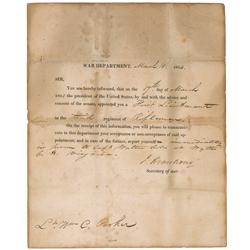 WAR DEPARTMENT, March 18. 1814.
SIR,
You are hereby informed, that on the 17th day of March
1814 the president of the United States, by and with the advice and
consent of the senate, appointed you a First Lieutenant
in the regiment of Riflemen
On the receipt of this information, you will please to communicate
to this department your acceptance or non-acceptance of said ap-
pointment; and in case of the former, report yourself immediately
in person to
J Armstrong
Secretary of war.
C. Parker